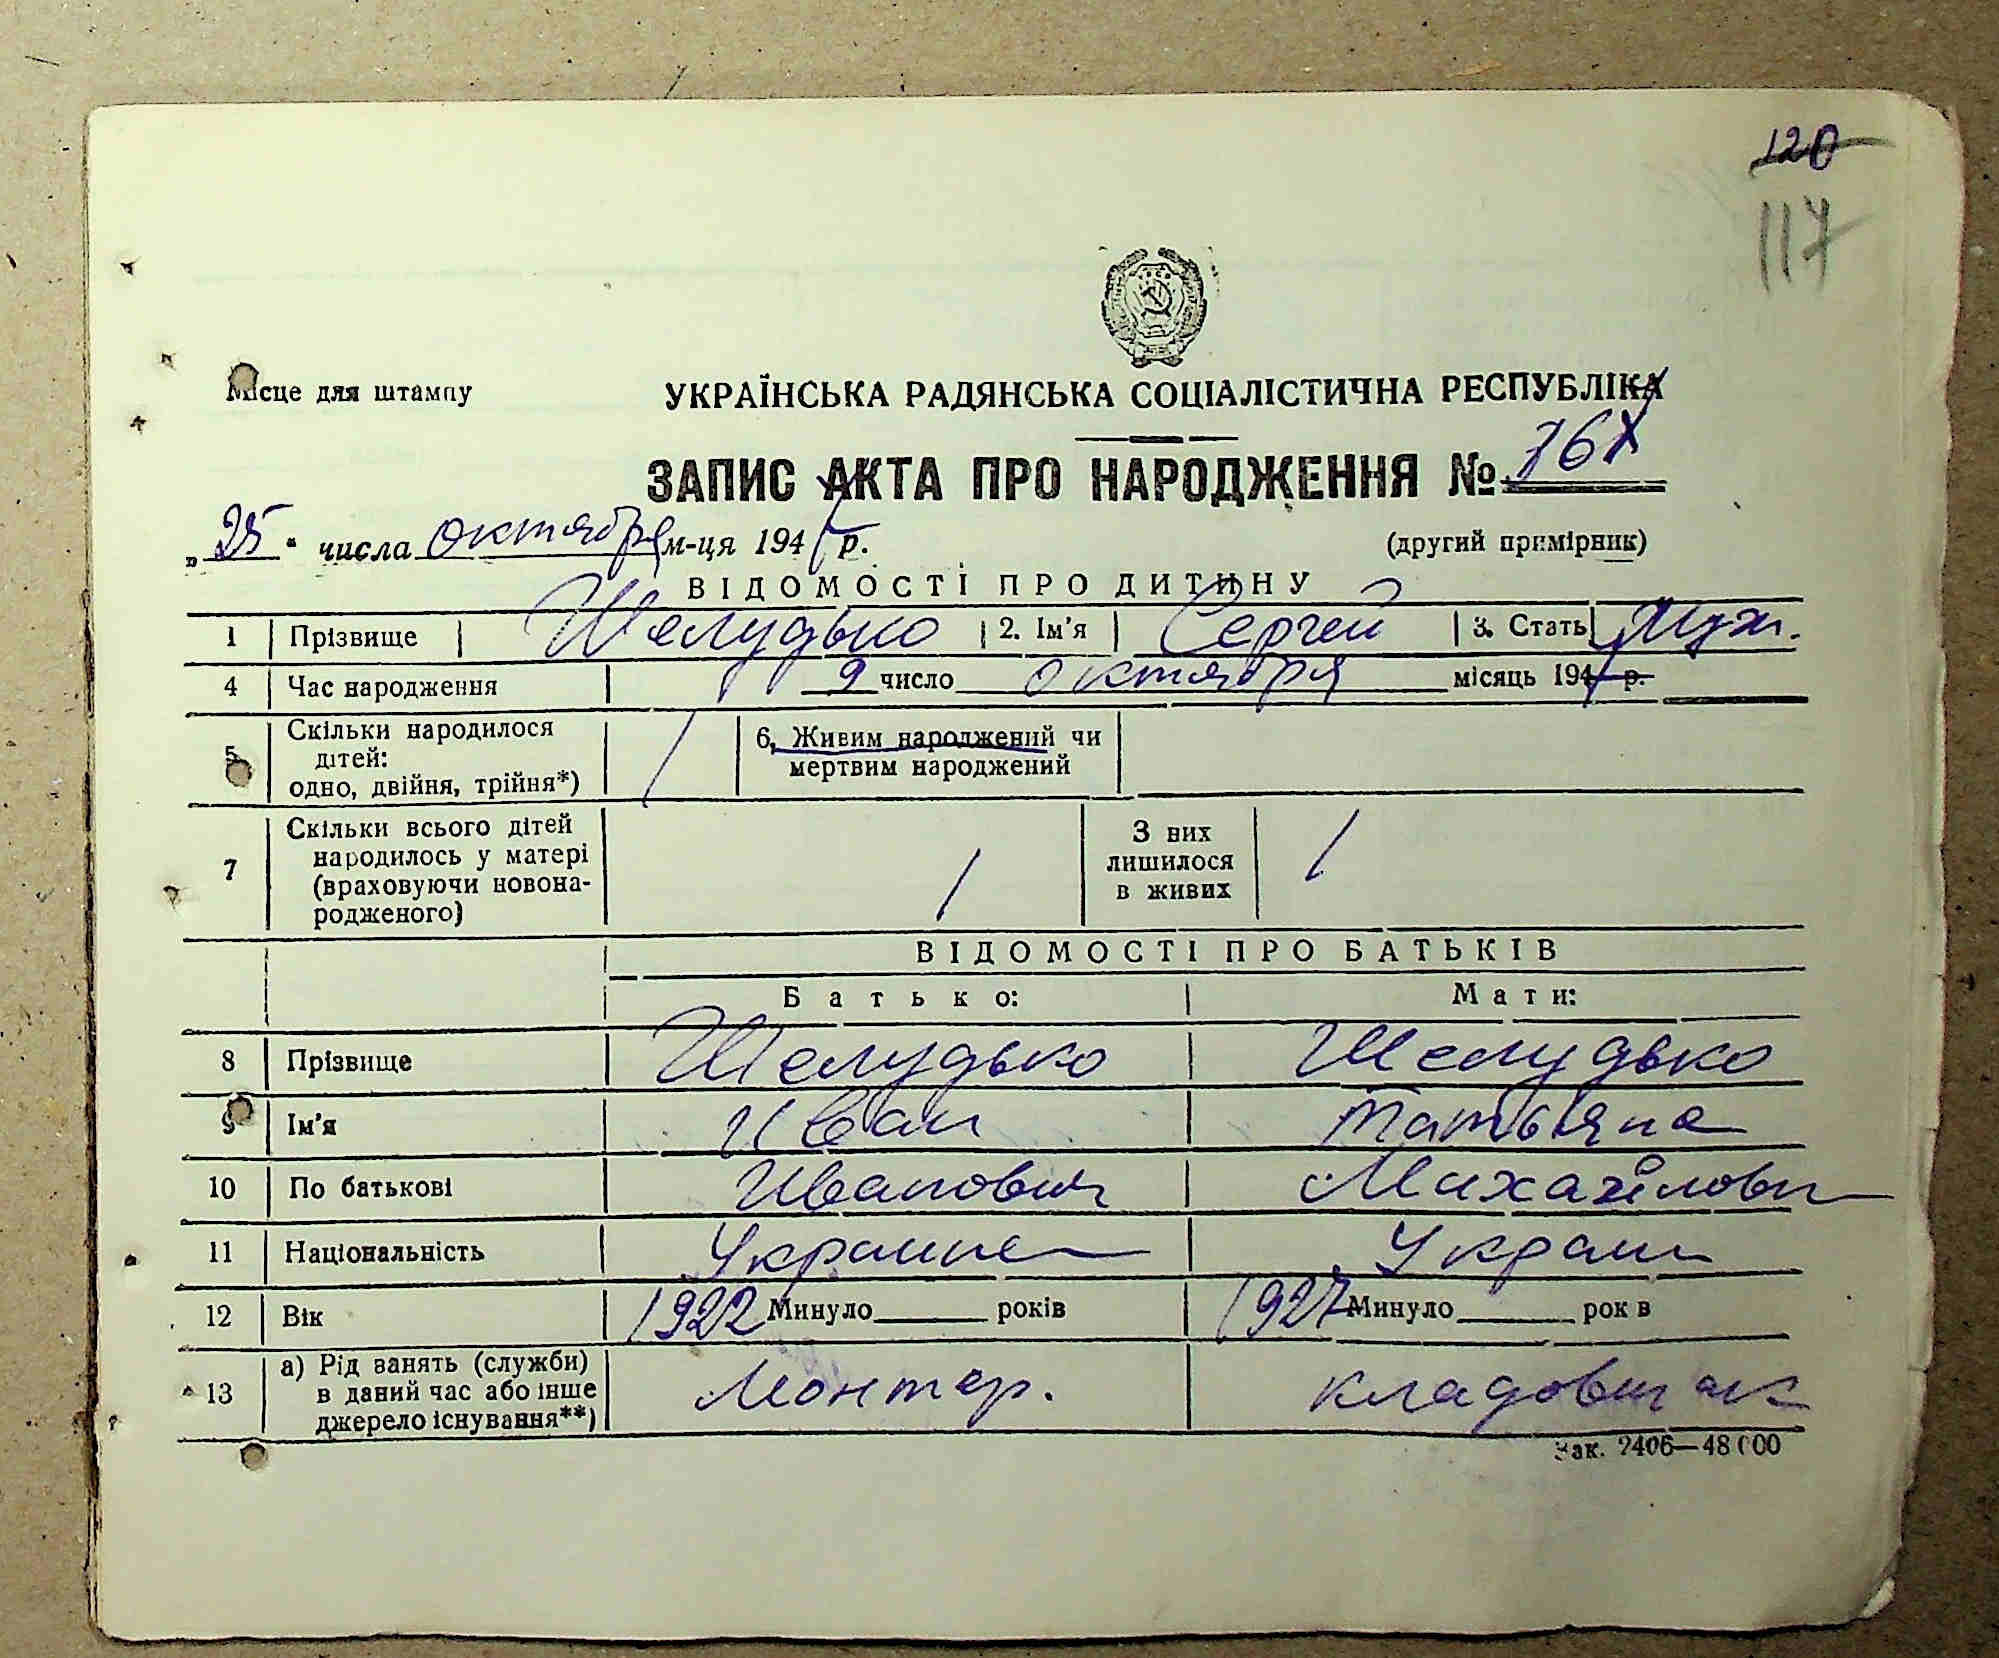 120
117
Місце для штампу
УКРАЇНСЬКА РАДЯНСЬКА СОЦІАЛІСТИЧНА РЕСПУБЛІКА
ЗАПИС АКТА ПРО НАРОДЖЕННЯ №
„25“ числа октября м-ця 194 р.
(другий примірник)
ВІДОМОСТІ ПРО ДИТИНУ
1 Прізвище Шелудько 2. Ім'я Сергей 3. Стать Муж.
4 Час народження 9 число октября місяць 194 р.
5 Скільки народилося дітей: одно, двійня, трійня*) 1 6. Живим народжений чи мертвим народжений
7 Скільки всього дітей народилось у матері (враховуючи новонародженого) 1 З них лишилося в живих 1
ВІДОМОСТІ ПРО БАТЬКІВ
Батько: Мати:
8 Прізвище Шелудько Шелудько
9 Ім'я Иван Татьяна
10 По батькові Иванович Михайловн
11 Національність Украине Украин
12 Вік 1922 Минуло років 1927 Минуло рок в
13 а) Рід занять (служби) в даний час або інше джерело існування**) Монтер. кладовщик
Зак. 2406—48000